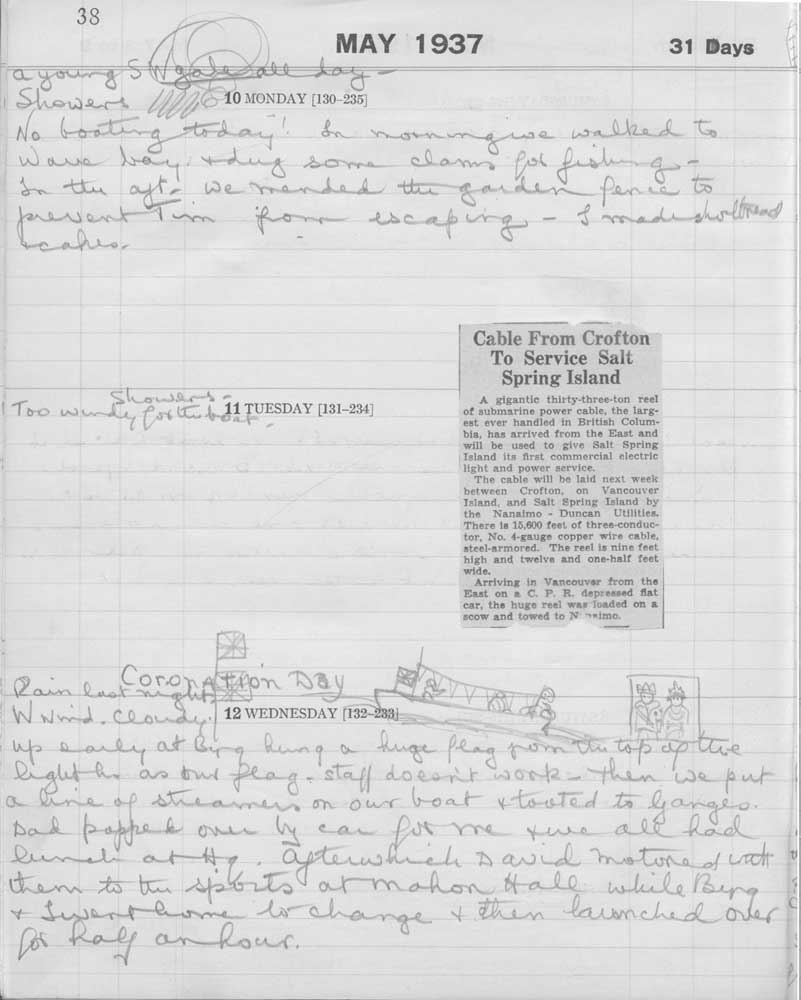 38
MAY 1937
31 Days
a young SW gale all day –
Showers
10 MONDAY [130–235]
No boating today! In morning we walked to
Wave bay. + dug some clams for fishing –
In the aft – we mended the garden fence to
prevent Tim from escaping – I made shortbread
+ cakes.
Cable From Crofton
To Service Salt
Spring Island
A gigantic thirty-three-ton reel
of submarine power cable, the larg-
est ever handled in British Colum-
bia, has arrived from the East and
will be used to give Salt Spring
Island its first commercial electric
light and power service.
The cable will be laid next week
between Crofton, on Vancouver
Island, and Salt Spring Island by
the Nanaimo - Duncan Utilities.
There is 15,600 feet of three-conduc-
tor, No. 4-gauge copper wire cable,
steel-armored. The reel is nine feet
high and twelve and one-half feet
wide.
Arriving in Vancouver from the
East on a C. P. R. depressed flat
car, the huge reel was loaded on a
scow and towed to Nanaimo.
Showers –
Too windy for the boat –
11 TUESDAY [131–234]
Coronation Day
Rain last night
W wind. Cloudy.
12 WEDNESDAY [132–233]
up early at Byg hung a huge flag from the top of the
light h. as our flag-staff doesn't work – then we put
a line of streamers on our boat + tooted to Ganges.
Dad popped over by car for me + we all had
lunch at Hg. afterwhich David motored with
them to the sports at Mahon Hall while Byng
+ I went home to change + then launched over
for half an hour.